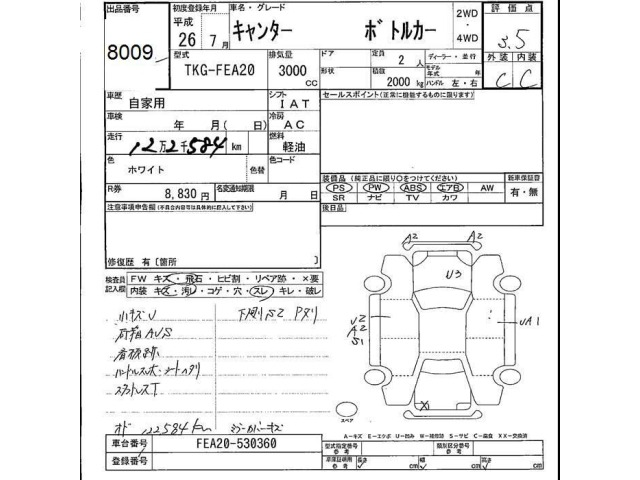 出品番号 初度登録年月 車名・グレード 2WD 評価点
8009 平成 26年 7月 キャンター ボトルカー ・4WD 3.5
型式 排気量 ドア 定員 2人 ディーラー・並行 外装 内装
TKG-FEA20 3000 CC 形状 積載 2000kg モデル年式 年 ハンドル 左・右 C C
車歴 自家用 シフト IAT セールスポイント(正常に機能するものに限ります)
車検 年 月( 日) 冷房 AC
走行 12万2千584 km 燃料 軽油
色 ホワイト 色替 色コード
装備品(純正品に限り○をつけてください) 新車保証書
R券 8,830円 名変通知期限 月 日 PS PW ABS エアB AW 有・無
SR ナビ TV カワ
注意事項申告欄(不具合内容等は具体的に記入して下さい) 後日品
修復歴 有〔箇所 〕
A2 A2
検査員記入欄 FW キズ・飛石・ヒビ割・リペア跡・×要
内装 キズ・汚レ・コゲ・穴・スレ・キレ・破レ
U3
小キズU 下廻りS2 Pヌリ
荷箱AUS
看板跡
UA1
A2
S1
X1
スペア
A-キズ E-エクボ U-凹み W-補修跡 S-サビ C-腐食 XX-交換済
車台番号 FEA20-530360 型式指定番号 参考 類別区分番号 参考
登録番号 車庫証明用 参考 長さ cm 幅 cm 高さ cm